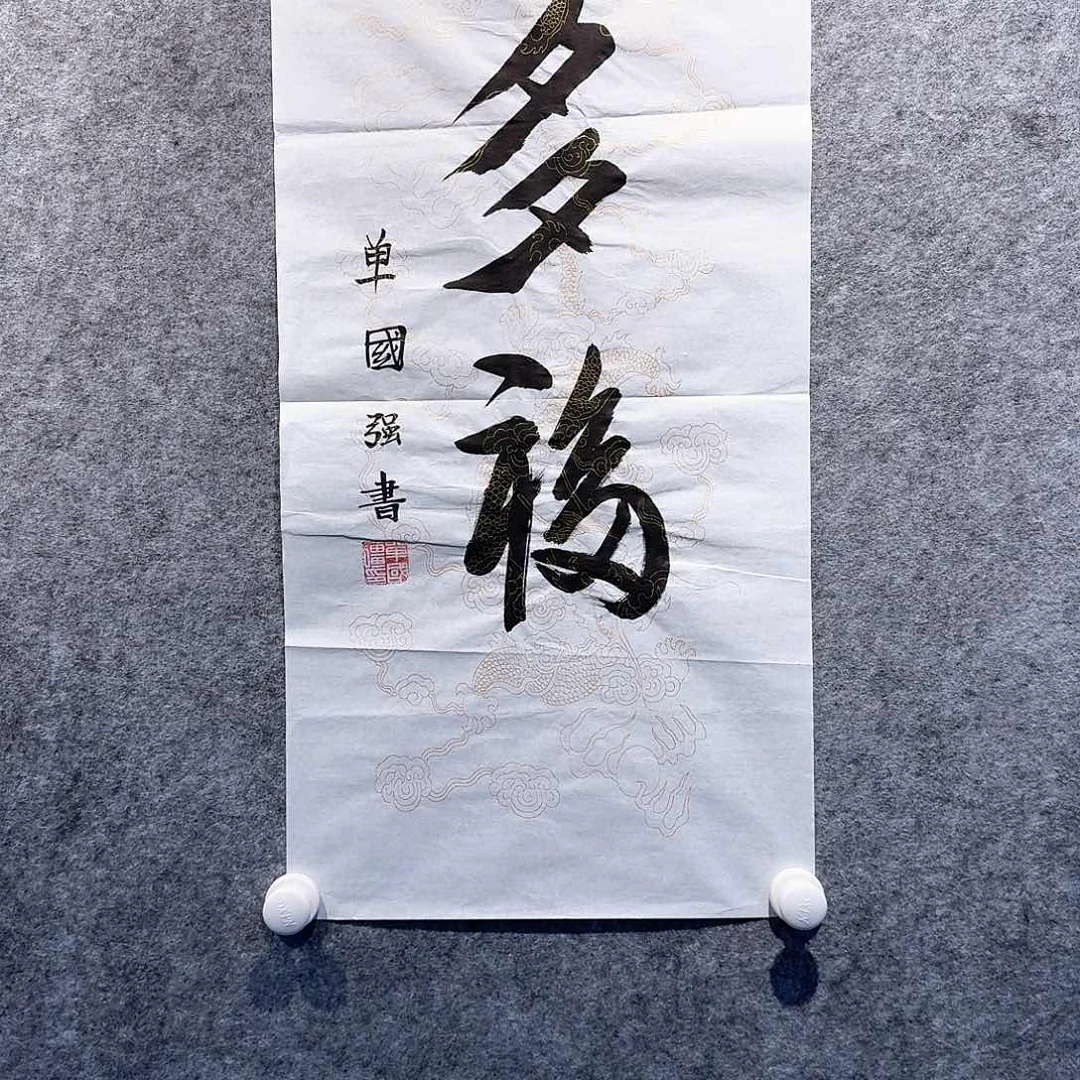 多福
单國强書